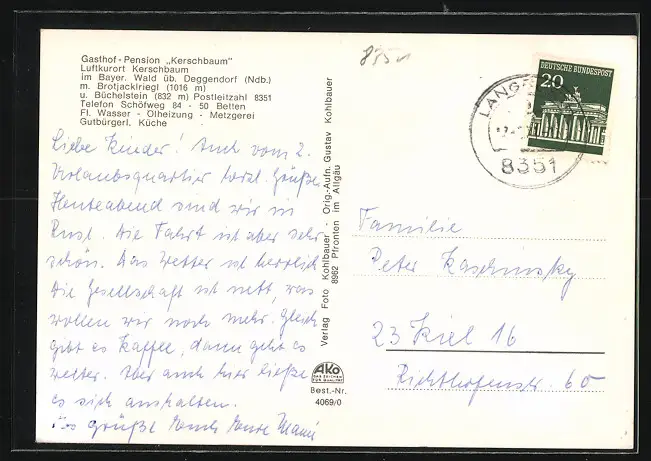 Gasthof - Pension „Kerschbaum"
Luftkurort Kerschbaum
im Bayer. Wald üb. Deggendorf (Ndb.)
m. Brotjacklriegl (1016 m)
u. Büchelstein (832 m) Postleitzahl 8351
Telefon Schöfweg 84 - 50 Betten
Fl. Wasser - Ölheizung - Metzgerei
Gutbürgerl. Küche
Liebe Kinder! Auch vom 2.
Urlaubsquartier herzl. Grüße
Heute abend sind wir in
Die Fahrt ist aber sehr
schön. Das Wetter ist herrlich
die Gesellschaft ist nett, was
wollen wir noch mehr. Gleich
gibt es Kaffee, dann geht es
weiter. Aber auch hier ließe
es sich aushalten.
Es grüßt Euch Eure Mami
Verlag Foto Kohlbauer - Orig.-Aufn. Gustav Kohlbauer
8962 Pfronten im Allgäu
AKO
DAS ZEICHEN
FÜR QUALITÄT
Best.-Nr.
4069/0
DEUTSCHE BUNDESPOST
20
8351
Familie
Peter Kaschinsky
23 Kiel 16
Richthofenstr. 60